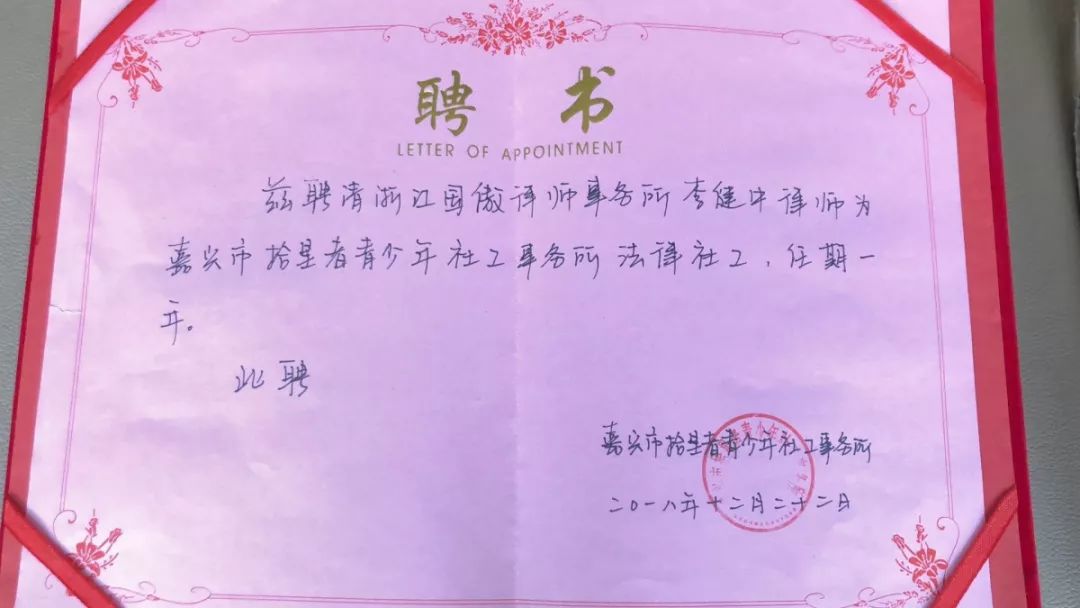 聘书
LETTER OF APPOINTMENT
兹聘请浙江国傲律师事务所李健中律师为
嘉兴市拾星者青少年社工事务所法律社工,任期一
年。
此聘
嘉兴市拾星者青少年社工事务所
二〇一八年十二月二十二日